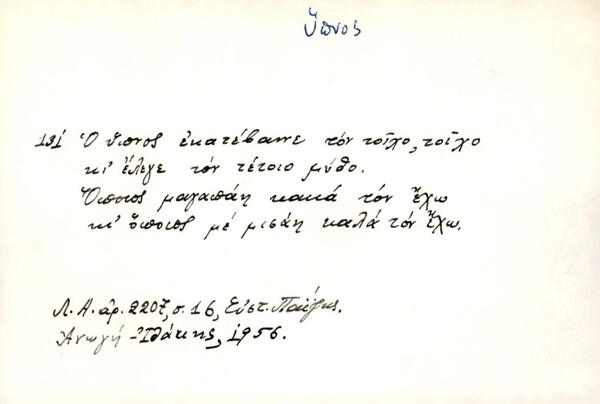 Ὕπνος
131 Ὁ ὕπνος ἐκατέβαινε τόν τοῖχο, τοῖχο
κι' ἔλεγε τόν τέτοιο μύθο.
Ὅποιος μαγαπάη κακά τόν ἔχω
κι' ὅποιος μέ μισάη καλά τόν ἔχω.
Λ.Α. ἀρ. 2207, σ. 16, Εὐστ.
Ἀνωγή - Ἰθάκης, 1956.